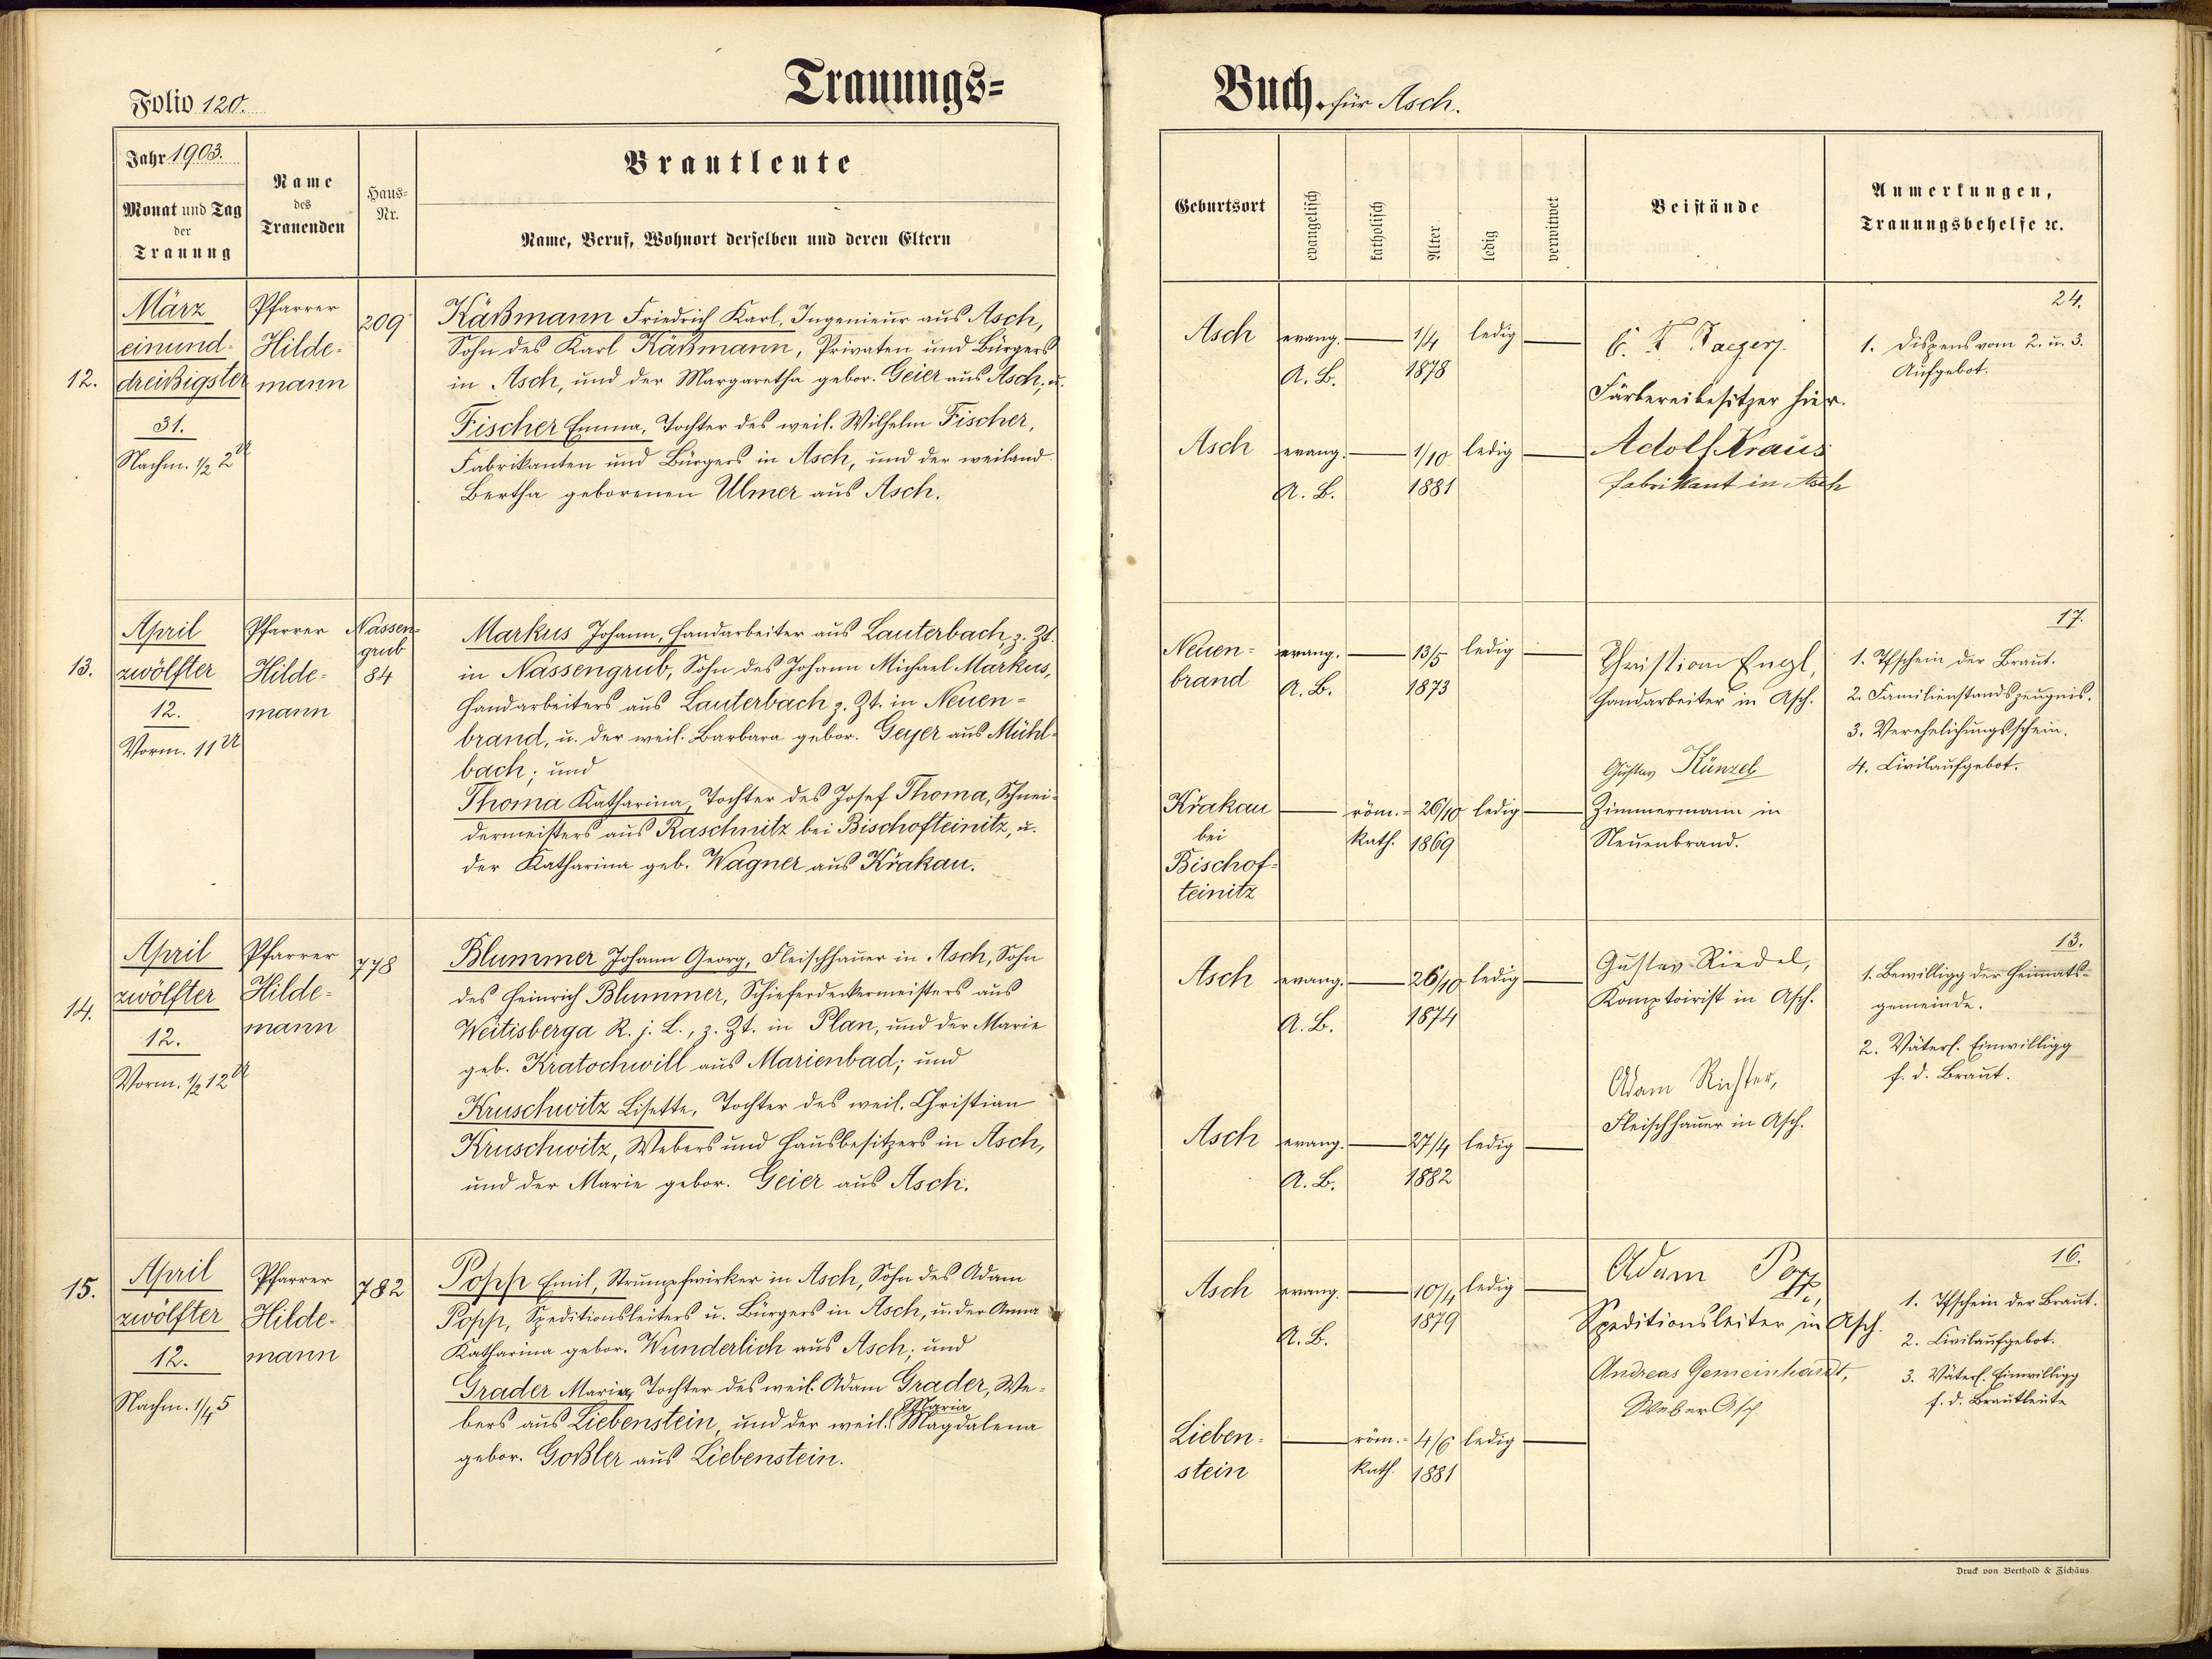 Folio 120.
Trauungs=
Jahr 1903.
Monat und Tag
der
Trauung
Name
des
Trauenden
Haus=
Nr.
Brautleute
Name, Beruf, Wohnort derselben und deren Eltern
12.
März
einund-
dreißigster
31.
Nachm. 1/2 2 U
Pfarrer
Hilde-
mann
209
Käßmann Friedrich Karl, Ingenieur aus Asch,
Sohn des Karl Käßmann, Privaten und Bürgers
in Asch, und der Margaretha gebor. Geier aus Asch; u.
Fischer Emma, Tochter des weil. Wilhelm Fischer,
Fabrikanten und Bürgers in Asch, und der weiland
Bertha geborenen Ulmer aus Asch.
13.
April
zwölfter
12.
Vorm. 11 U
Pfarrer
Hilde-
mann
Nassen-
grub
84
Markus Johann, Handarbeiter aus Lauterbach, z. Zt.
in Nassengrub, Sohn des Johann Michael Markus,
Handarbeiters aus Lauterbach z. Zt. in Neuen=
brand, u. der weil. Barbara gebor. Geyer aus Mühl-
bach; und
Thoma Katharina, Tochter des Josef Thoma, Schnei-
dermeisters aus Raschnitz bei Bischofteinitz, u.
der Katharina geb. Wagner aus Křakau.
14.
April
zwölfter
12.
Vorm. 1/2 12 U
Pfarrer
Hilde=
mann
778
Blummer Johann Georg, Fleischhauer in Asch, Sohn
des Heinrich Blummer, Schieferdeckermeisters aus
Weitisberga R. j. L., z. Zt. in Plan, und der Marie
geb. Kratochwill aus Marienbad; und
Kruschwitz Lisette, Tochter des weil. Christian
Kruschwitz, Webers und Hausbesitzers in Asch,
und der Marie gebor. Geier aus Asch.
15.
April
zwölfter
12.
Nachm. 1/4 5
Pfarrer
Hilde-
mann
782
Popp Emil, Strumpfwirker in Asch, Sohn des Adam
Popp, Speditionsleiters u. Bürgers in Asch, u. der Anna
Katharina gebor. Wunderlich aus Asch; und
Grader Maria, Tochter des weil. Adam Grader, We-
Maria
bers aus Liebenstein, und der weil. Magdalena
gebor. Goßler aus Liebenstein.
Buch. für Asch.
Geburtsort
evangelisch
katholisch
Alter
ledig
verwitwet
Beistände
Anmerkungen,
Trauungsbehelfe ec.
Asch evang. 1/4 ledig
A. B. 1878
Asch evang. 1/10 ledig
A. B. 1881
Färbereibesitzer hier.
Adolf Kraus
Fabrikant in Asch
24.
1. Dispens vom 2. u. 3.
Aufgebot.
Neuen= evang. 13/5 ledig
brand A. B. 1873
Křakau röm.= 26/10 ledig
bei kath. 1869
Bischof-
teinitz
Christian Engl,
Handarbeiter in Asch.
Gustav Künzel
Zimmermann in
Neuenbrand.
17.
1. Tfschein der Braut.
2. Familienstandszeugnis.
3. Verehelichungsschein.
4. Civilaufgebot.
Asch evang. 26/10 ledig
A. B. 1874
Asch evang. 27/4 ledig
A. B. 1882
Gustav Riedel,
Komptoirist in Asch.
Adam Richter,
Fleischhauer in Asch.
13.
1. Bewilligg der Heimats-
gemeinde.
2. Väterl. Einwilligg
f. d. Braut.
Asch evang. 10/4 ledig
A. B. 1879
Lieben- röm.= 4/6 ledig
stein kath. 1881
Adam Popp,
Speditionsleiter in Asch.
Andreas Gemeinhardt,
Weber Asch
16.
1. Tfschein der Braut.
2. Civilaufgebot.
3. Väterl. Einwilligg
f. d. Brautleute
Druck von Berthold & Zichäus.